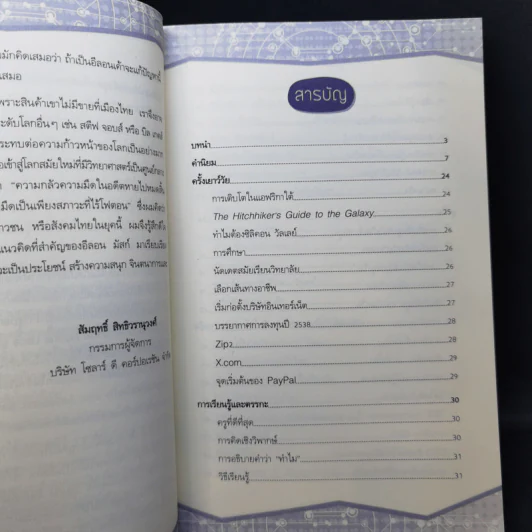 มักคิดเสมอว่า ถ้าเป็นอีลอนเค้าจะแก้ปัญหานี้
เสมอ
เพราะสินค้าเขาไม่มีขายที่เมืองไทย เราจึง
ระดับโลกอื่นๆ เช่น สตีฟ จอบส์ หรือ บิล เกตส์
กระทบต่อความก้าวหน้าของโลกเป็นอย่างมาก
เข้าสู่โลกสมัยใหม่ที่มีวิทยาศาสตร์เป็น
"ความกลัวความมืดในอดีตหายไปหมดสิ้น
มืดเป็นเพียงสภาวะที่ไร้โฟตอน" ซึ่งผมคิดว่า
หรือสังคมไทยในยุคนี้ ผมจึงรู้สึกดีใจ
แนวคิดที่สำคัญของอีลอน มัสก์ มาเรียบเรียง
จะเป็นประโยชน์ สร้างความสนุก จินตนาการและ
สัมฤทธิ์ สิทธิวรานุวงศ์
กรรมการผู้จัดการ
บริษัท โซลาร์ ดี คอร์ปอเรชั่น จำกัด
สารบัญ
บทนำ 3
คำนิยม 7
ครั้งเยาว์วัย 24
การเติบโตในแอฟริกาใต้ 24
The Hitchhiker's Guide to the Galaxy 25
ทำไมต้องซิลิคอน วัลเลย์ 25
การศึกษา 26
นัดเดตสมัยเรียนวิทยาลัย 26
เลือกเส้นทางอาชีพ 26
เริ่มก่อตั้งบริษัทอินเทอร์เน็ต 27
บรรยากาศการลงทุนปี 2538 28
Zip2 28
X.com 29
จุดเริ่มต้นของ PayPal 29
การเรียนรู้และตรรกะ 30
ครูที่ดีที่สุด 30
การคิดเชิงวิพากษ์ 30
การอธิบายคำว่า "ทำไม" 31
วิธีเรียนรู้ 31